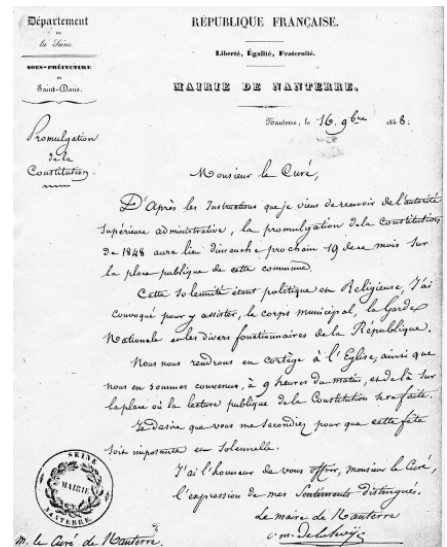 Département
de
la Seine.
SOUS-PRÉFECTURE
de
Saint-Denis.
Promulgation
de la
Constitution.
RÉPUBLIQUE FRANÇAISE.
Liberté, Égalité, Fraternité.
MAIRIE DE NANTERRE.
Nanterre, le 16. 9bre 1848.
Monsieur le Curé,
D'Après les Instructions que je viens de recevoir de l'autorité
Supérieure administrative, la promulgation de la Constitution
de 1848 aura lieu dimanche prochain 19 de ce mois sur
la place publique de cette commune.
Cette Solemnité étant politique et Religieuse, J'ai
Convoqué pour y assister, le corps municipal, la Garde
Nationale et les divers fonctionnaires de la République.
Nous nous rendrons en cortège à l'Eglise, ainsi que
nous en sommes convenus, à 9 heures du matin, et de là sur
la place où la lecture publique de la Constitution sera faite.
Je desire que vous me secondiez pour que cette fête
soit imposante et Solennelle.
J'ai l'honneur de vous offrir, monsieur le Curé,
l'expression de mes Sentiments distingués.
Le maire de Nanterre
SEINE
MAIRIE
NANTERRE
M. le Curé de Nanterre.